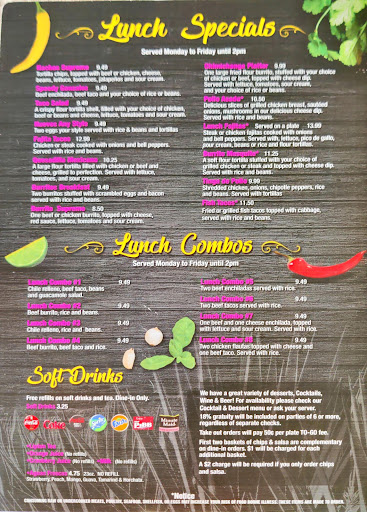 Lunch Specials
Served Monday to Friday until 2pm
Nachos Supreme 9.49
Tortilla chips, topped with beef or chicken, cheese,
beans, lettuce, tomatoes, jalapenos and sour cream.
Speedy Gonzales 9.49
Beef enchilada, beef taco and your choice of rice or beans.
Taco Salad 9.49
A crispy flour tortilla shell, filled with your choice of chicken,
beef or beans and cheese, lettuce, tomatoes and sour cream.
9.49
Two eggs your style served with rice & beans and tortillas
Fajita Tacos 12.50
Chicken or steak cooked with onions and bell peppers.
Served with rice and beans.
10.25
A large flour tortilla filled with chicken or beef and
cheese, grilled to perfection. Served with lettuce,
tomatoes, and sour cream.
Burritos Breakfast 9.49
Two burritos stuffed with scrambled eggs and bacon
served with rice and beans.
Burrito Supreme 8.50
One beef or chicken burrito, topped with cheese,
red sauce, lettuce, tomatoes and sour cream.
Chimichanga Platter 9.09
One large fried flour burrito, stuffed with your choice
of chicken or beef, topped with cheese dip.
Served with lettuce, tomatoes, sour cream,
and your choice of rice or beans.
Pollo Asado* 10.50
Delicious mates of grilled chicken breast, sautéed
onions, mushrooms in our delicious dip.
Served with rice and beans.
Lunch Fajitas* Served on a plate 13.50
Steak or chicken fajitas cooked with onions
and bell peppers. Served with, lettuce, pico de gallo,
sour cream, beans or rice and flour tortillas
11.25
A soft flour tortilla stuffed with your choice of
grilled chicken or steak and topped with cheese dip.
Served with rice and beans.
Tinga de Pollo 9.99
Shredded chicken, onions, chipotle peppers, rice
and beans. Served with tortillas
Fish Tacos* 11.50
Fried or grilled fish tacos topped with cabbage,
served with rice and beans.
Lunch Combos
Served Monday to Friday until 2pm
Lunch Combo #1 9.49
Chile relleno, beef taco, beans
and guacamole salad.
Lunch Combo #2 9.49
Beef burrito, rice and beans.
Lunch Combo #3 9.49
Chile relleno, rice and beans.
Lunch Combo #4 9.49
Beef burrito, beef taco and rice.
Lunch Combo #5 9.49
Two beef enchiladas served with rice.
Lunch Combo #6 9.49
Two beef tacos served with rice.
Lunch Combo #7 9.49
One beef and one cheese enchilada, topped
with lettuce and sour cream. Served with rice.
Lunch Combo #8 9.49
Two chicken flautas topped with cheese and
one beef taco. Served with rice.
Soft Drinks
Free refills on soft drinks and tea. Dine-in Only.
3.25
Coke
Minute Maid
(No refills)
(No refills)
(No refills)
4.75 23oz. NO REFILL
Strawberry, Peach, Mango, Guava, Tamarind & Horchata.
We have a great variety of desserts, Cocktails,
Wine & Beer! For availability please check our
Cocktail & Dessert menu or ask your server.
18% gratuity will be included on parties of 6 or more,
regardless of separate checks.
Take out orders will pay 50¢ per plate TO-GO fee.
First two baskets of chips & salsa are complementary
on dine-in orders. $1 will be charged for each
additional basket.
A $2 charge will be required if you only order chips
and salsa.
*Notice
CONSUMING RAW OR UNDERCOOKED MEATS, POULTRY, SEAFOOD, SHELLFISH, OR EGGS MAY INCREASE YOUR RISK OF FOOD BORNE ILLNESS. THESE ITEMS ARE MADE TO ORDER.